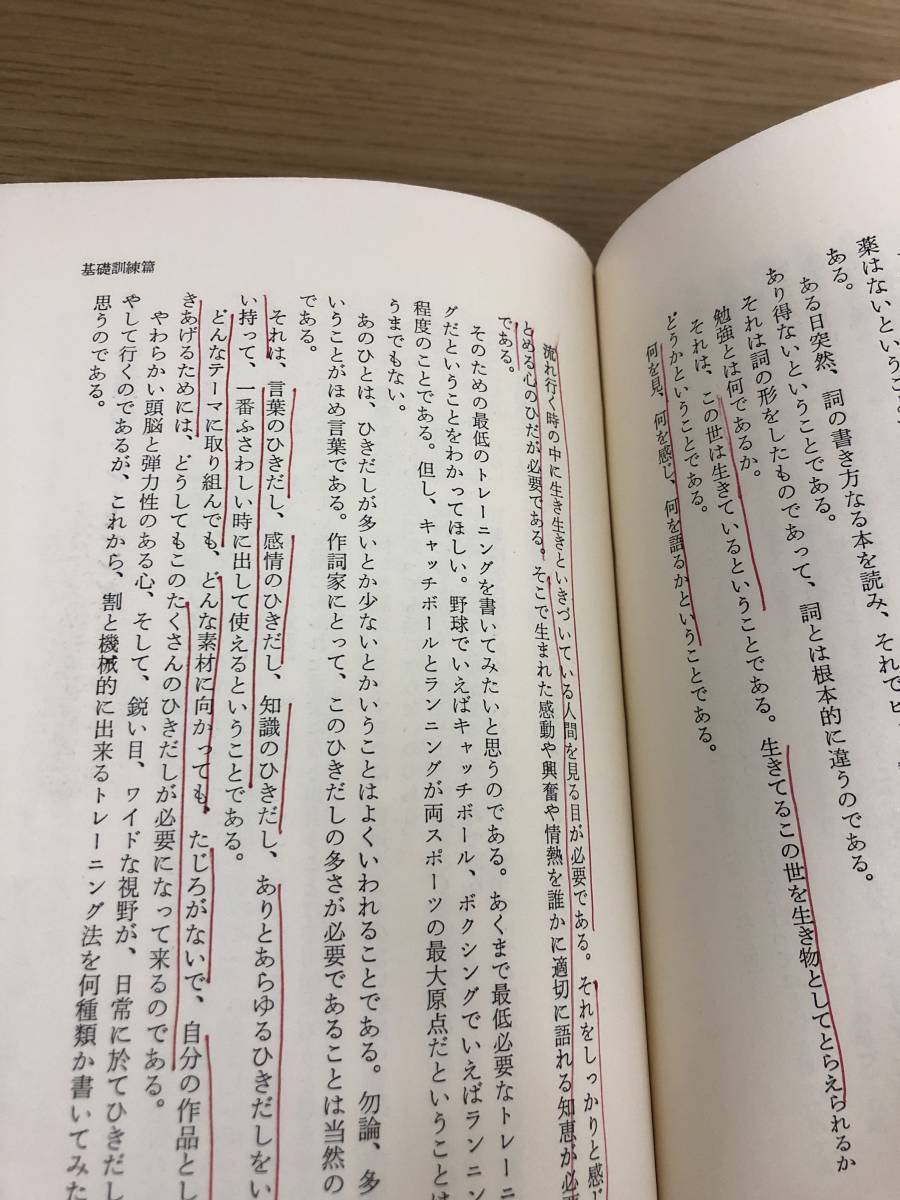 薬はないということ
ある。
ある日突然、詞の書き方なる本を読み、それでヒ
あり得ないということである。
それは詞の形をしたものであって、詞とは根本的に違うのである。
勉強とは何であるか。
それは、この世は生きているということである。生きてるこの世を生き物としてとらえられるか
どうかということである。
何を見、何を感じ、何を語るかということである。
流れ行く時の中に生き生きといきづいている人間を見る目が必要である。それをしっかりと感じ
とめる心のひだが必要である。そこで生まれた感動や興奮や情熱を誰かに適切に語れる知恵が必要
である。
そのための最低のトレーニングを書いてみたいと思うのである。あくまで最低必要なトレーニ
グだということをわかってほしい。野球でいえばキャッチボール、ボクシングでいえばランニン
程度のことである。但し、キャッチボールとランニングが両スポーツの最大原点だということは
うまでもない。
あのひとは、ひきだしが多いとか少ないとかいうことはよくいわれることである。勿論、多
いうことがほめ言葉である。作詞家にとって、このひきだしの多さが必要であることは当然の
である。
それは、言葉のひきだし、感情のひきだし、知識のひきだし、ありとあらゆるひきだしをい
い持って、一番ふさわしい時に出して使えるということである。
どんなテーマに取り組んでも、どんな素材に向かっても、たじろがないで、自分の作品とし
きあげるためには、どうしてもこのたくさんのひきだしが必要になって来るのである。
やわらかい頭脳と弾力性のある心、そして、鋭い目、ワイドな視野が、日常に於てひきだし
やして行くのであるが、これから、割と機械的に出来るトレーニング法を何種類か書いてみた
思うのである。
基礎訓練篇